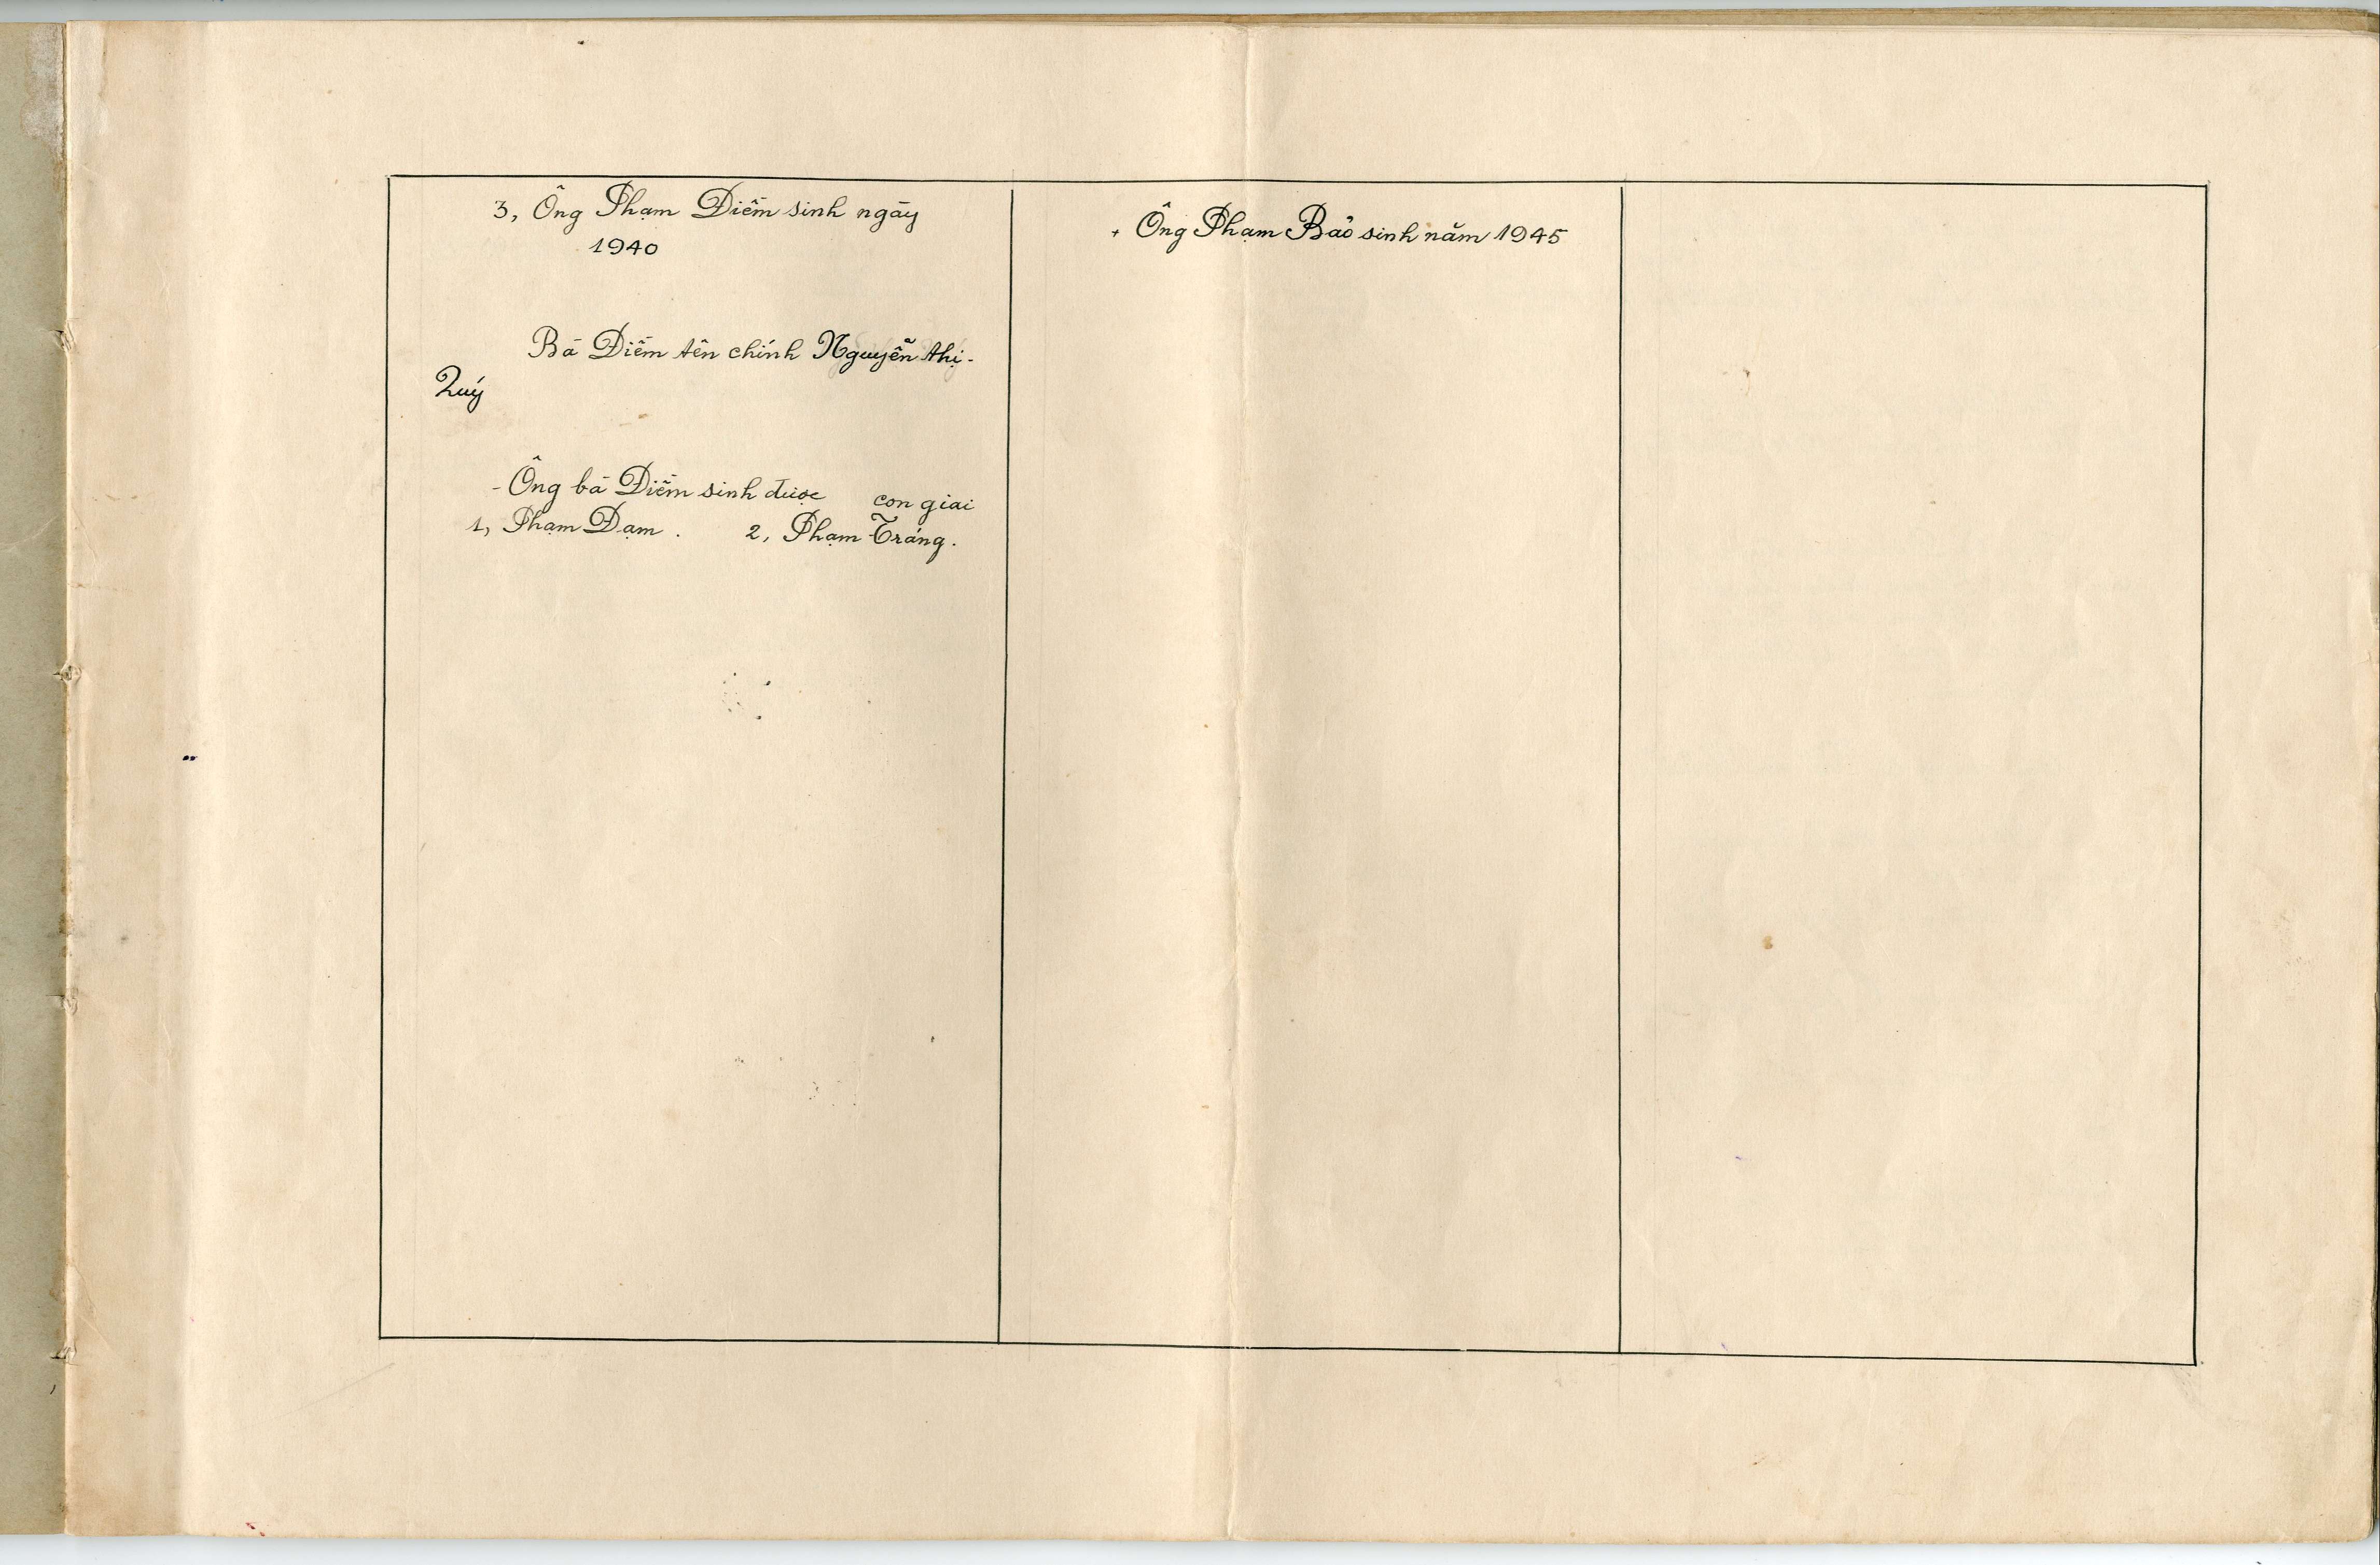 3, Ông Phạm Điềm sinh ngày
1940
Bà Điềm tên chính Nguyễn thị-
Quý
- Ông bà Điềm sinh được con giai
1, Phạm Đạm . 2, Phạm Tráng.
+ Ông Phạm Bảo sinh năm 1945